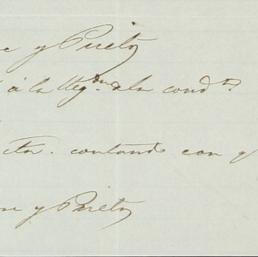 e y Prieto
á la Regon de la condn
cta. contando con q
ne y Prieto